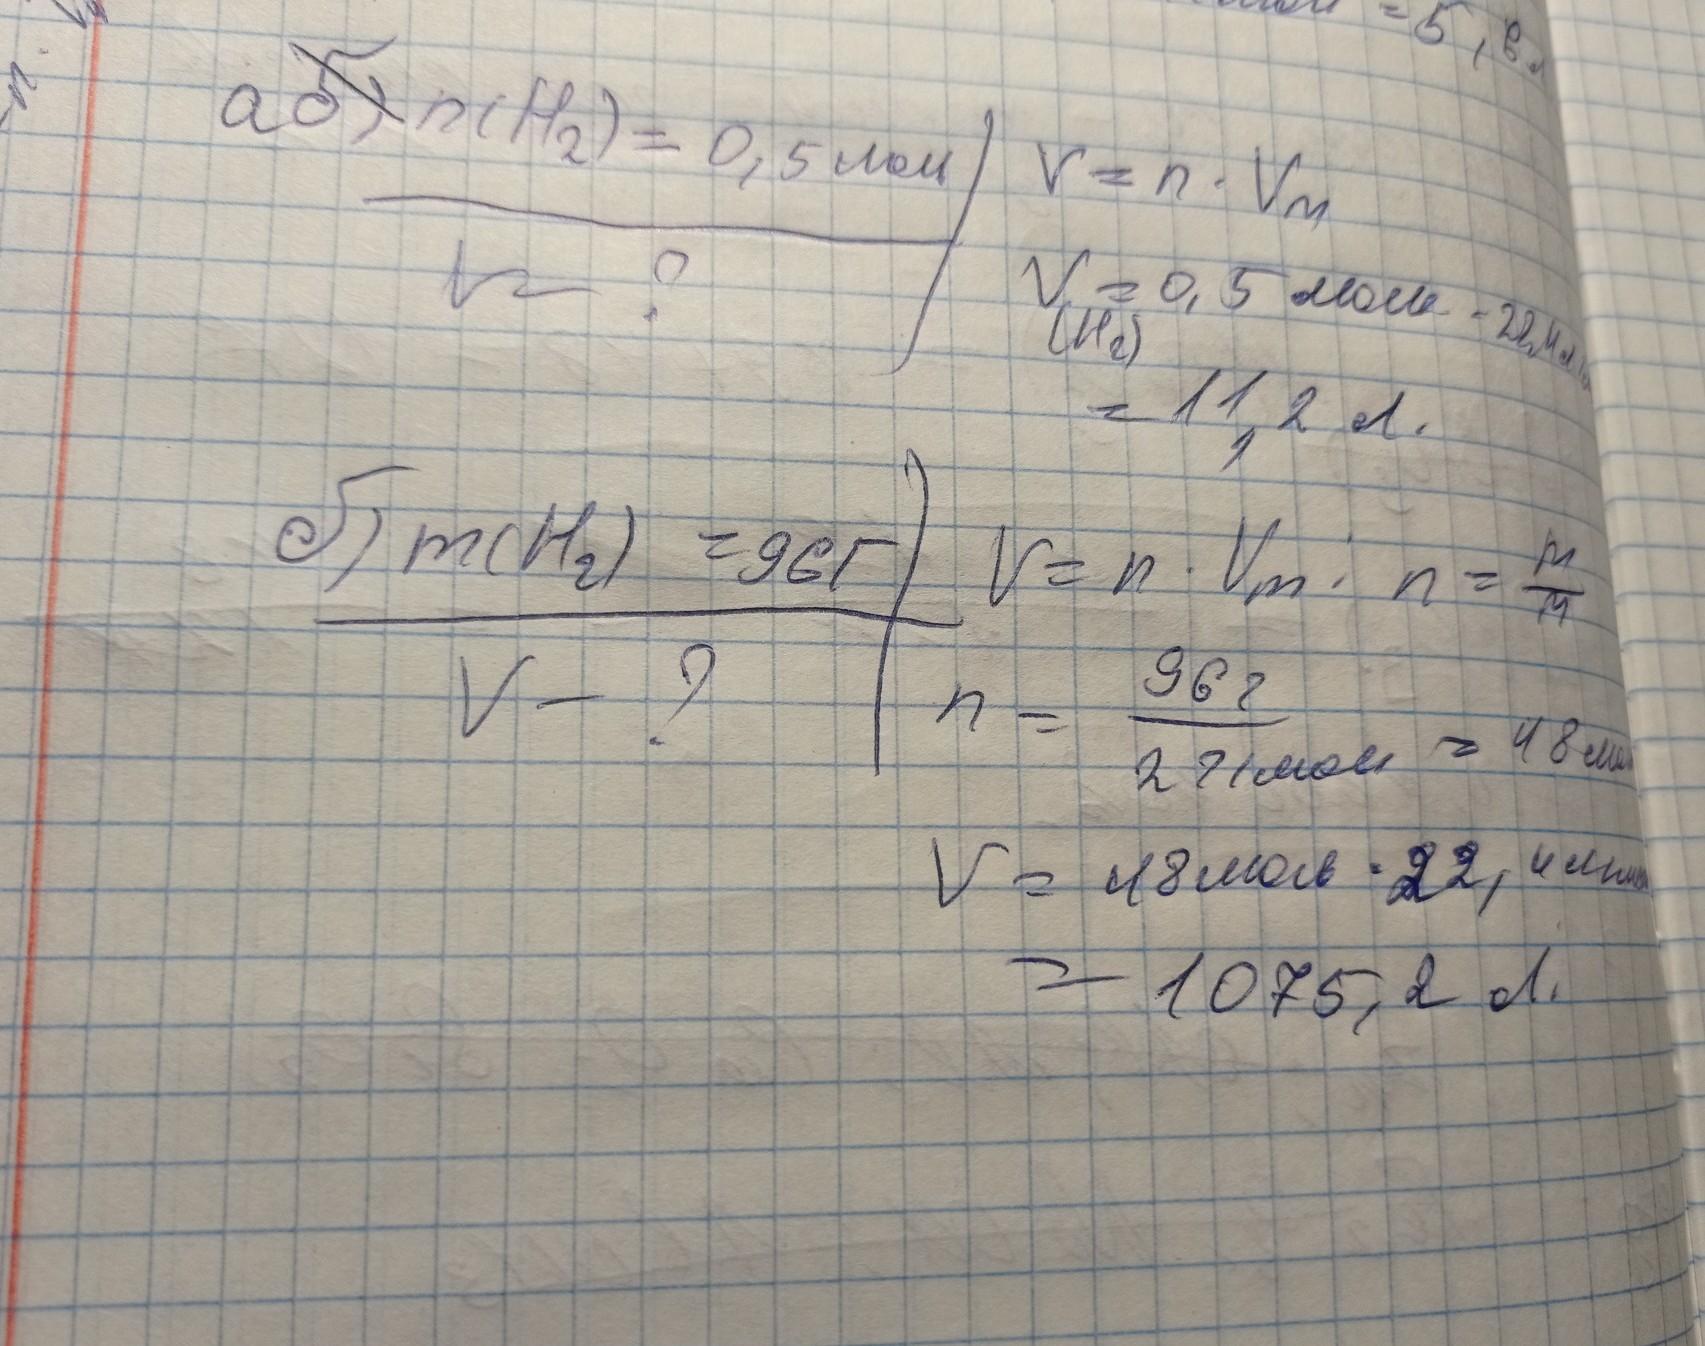 = 5,6 л
а) n(H₂) = 0,5 моль
V = n · Vm
V – ?
V(H₂) = 0,5 моль · 22,4 л
= 11,2 л.
б) m(H₂) = 96г
V = n · Vm ; n = m/M
V – ?
n = 96 г / 2 г/моль = 48 моль
V = 48 моль · 22,4 л/моль
= 1075,2 л.